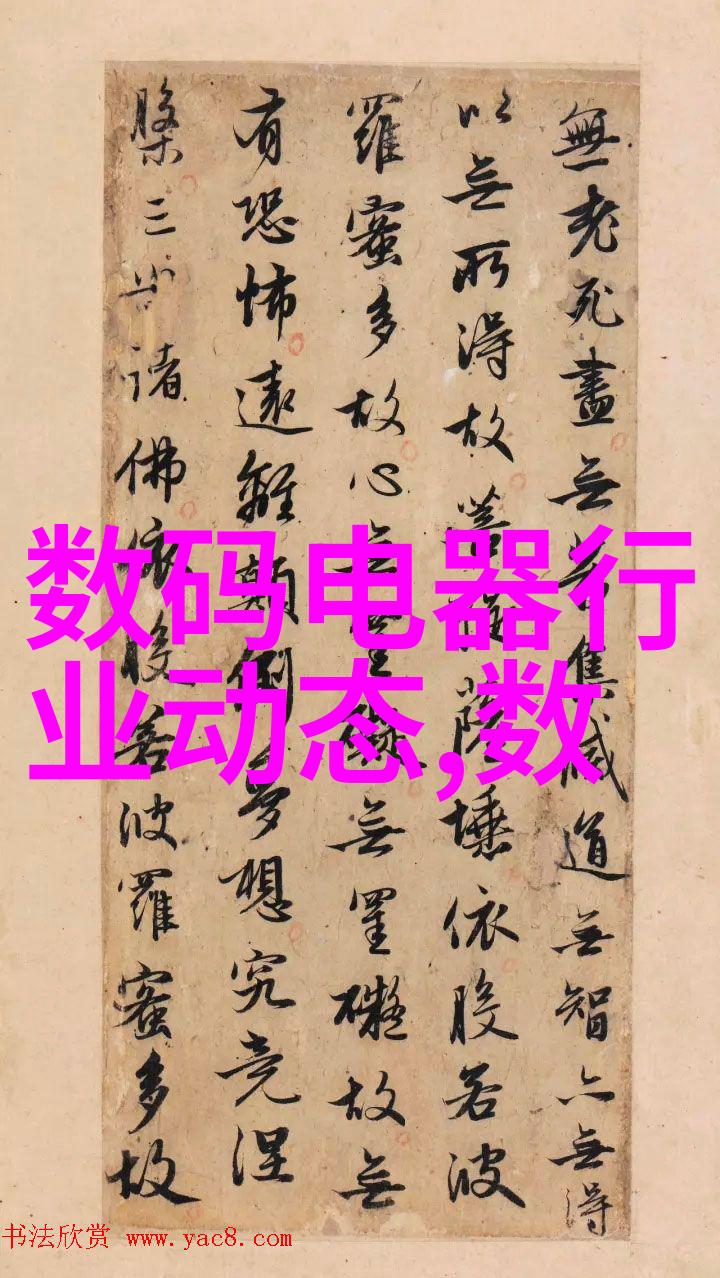 無老死盡無苦集滅道無智亦無得
以無所得故菩提薩埵依般若波
羅蜜多故心無罣礙無罣礙故無
有恐怖遠離顛倒夢想究竟涅
槃三世諸佛依般若波羅蜜多故
数码电器行
业动态,数
书法欣赏 www.yac8.com